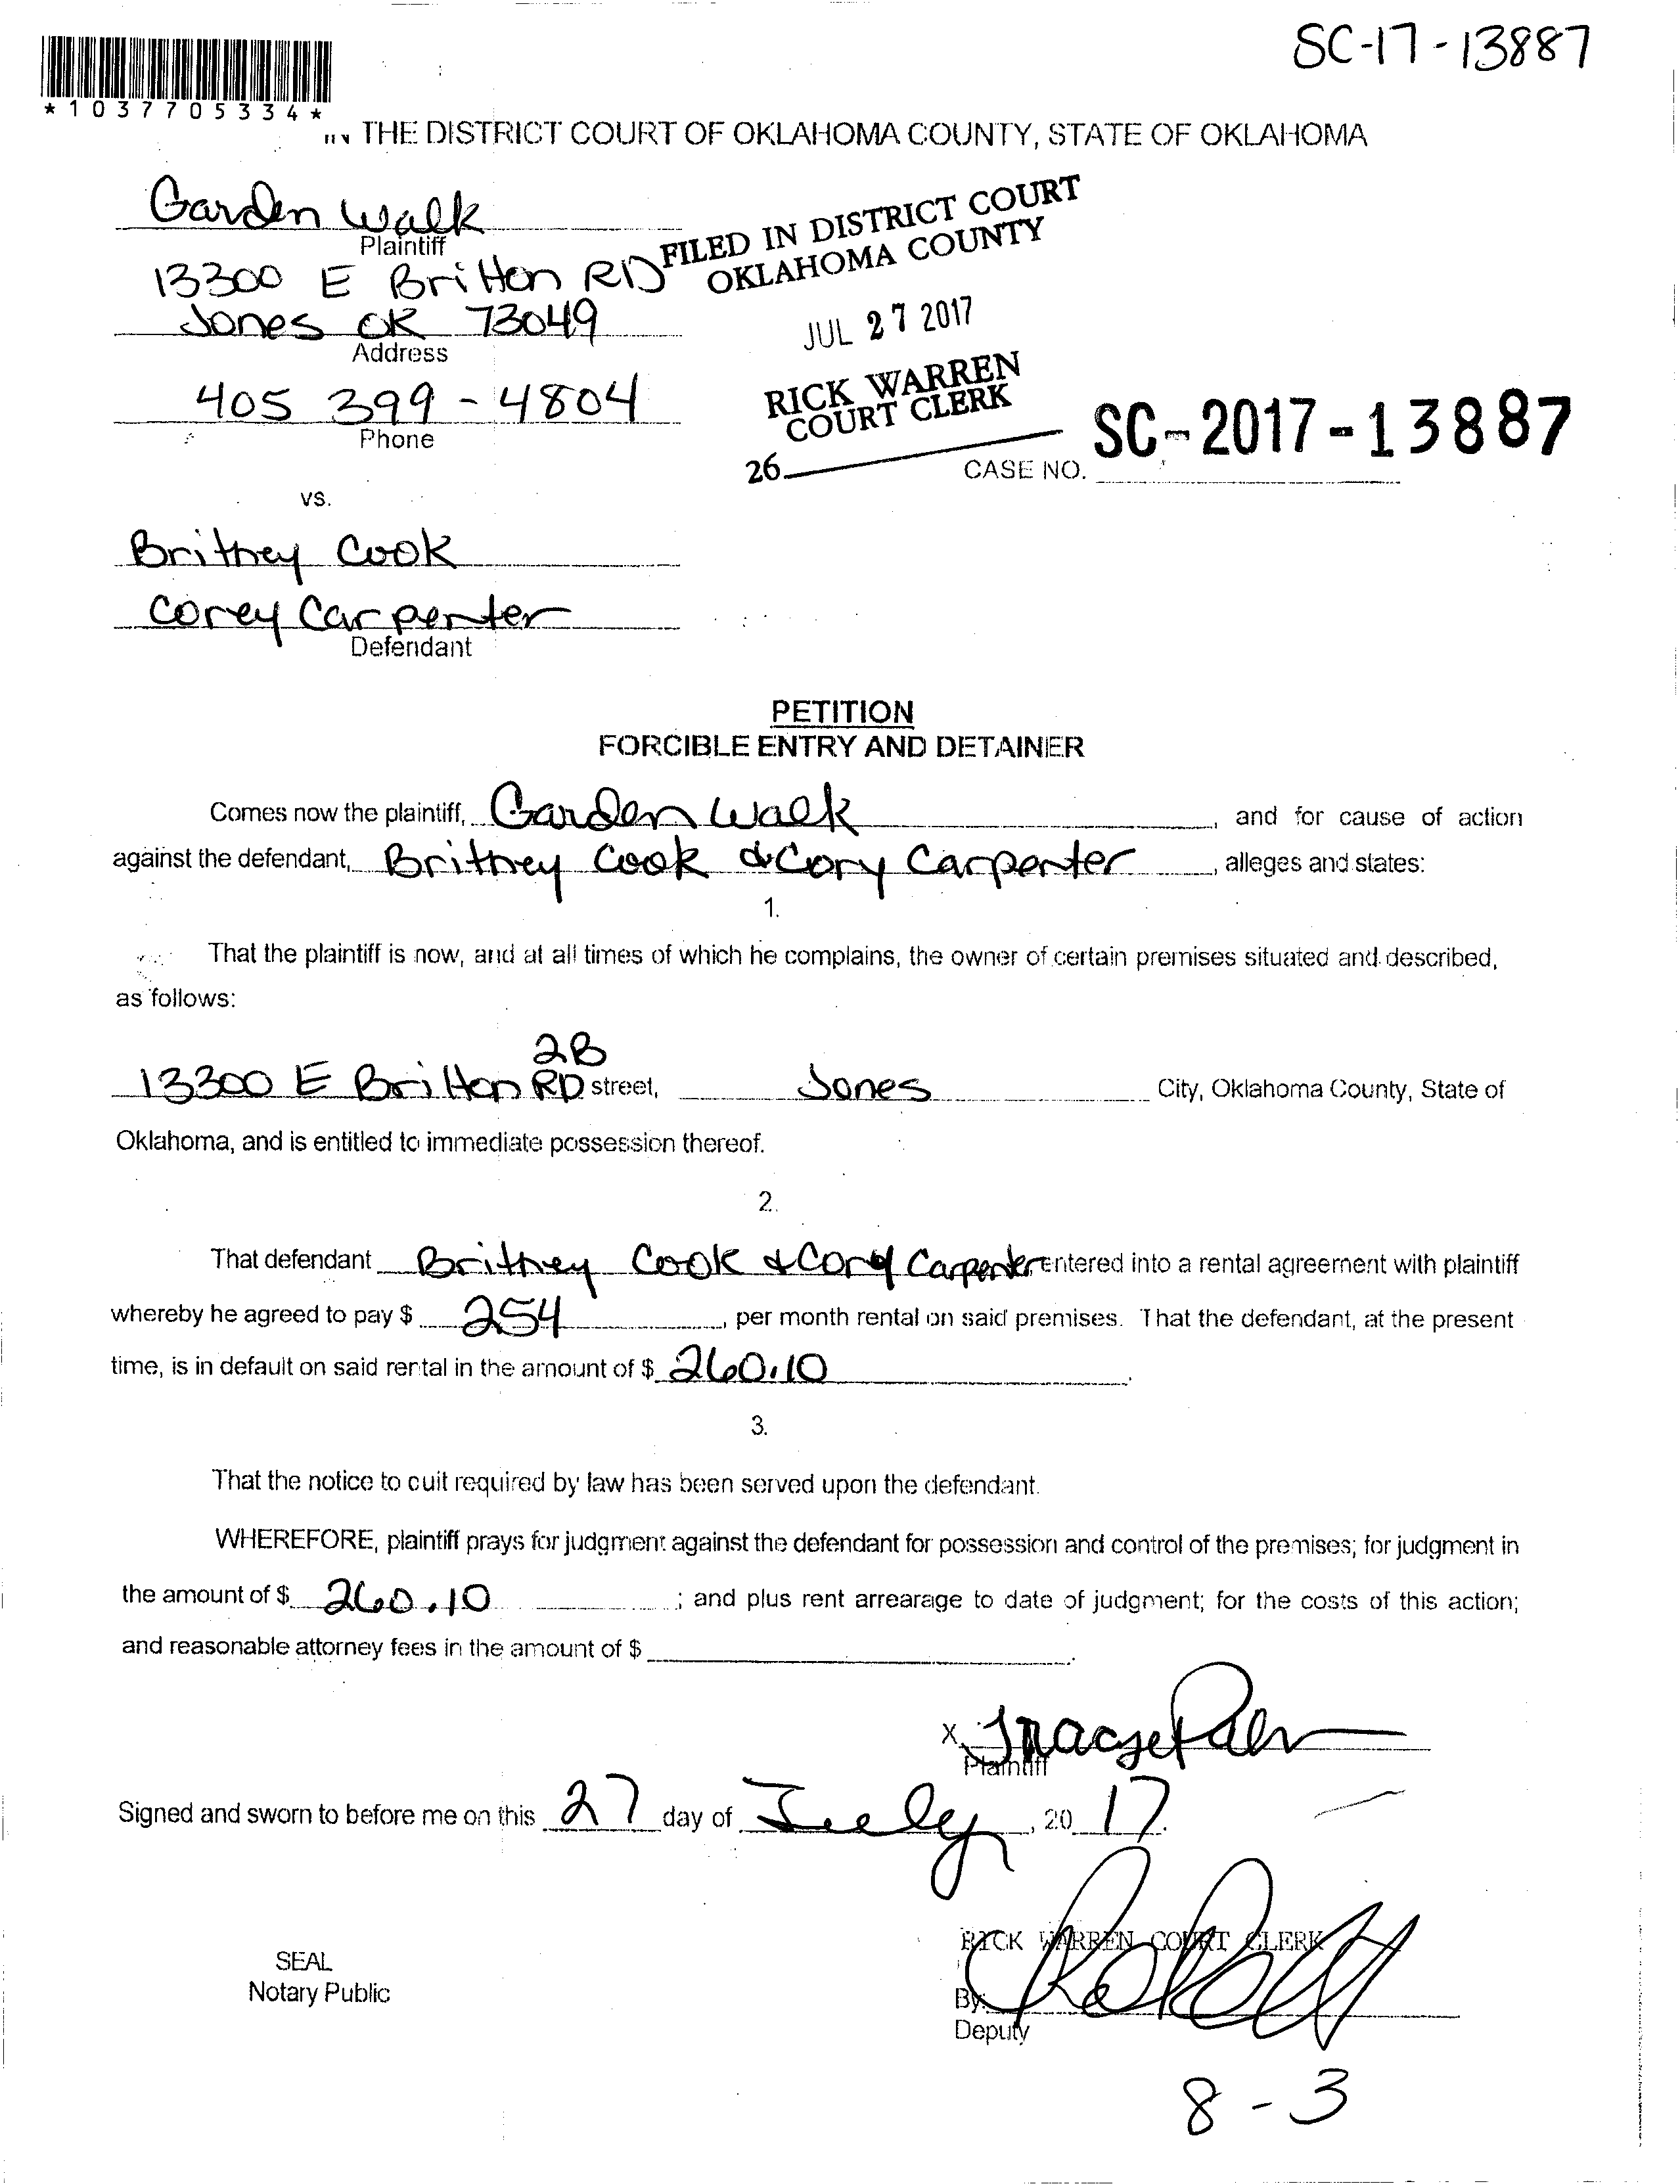 SC-17-13887
*1037705334*
THE DISTRICT COURT OF OKLAHOMA COUNTY, STATE OF OKLAHOMA
Garden Walk
Plaintiff
13300 E Britton RD
Jones OK 73049
Address
405 399-4804
Phone
FILED IN DISTRICT COURT
OKLAHOMA COUNTY
JUL 27 2017
RICK WARREN
COURT CLERK
26
CASE NO. SC-2017-13887
vs.
Britney Cook
Corey Carpenter
Defendant
PETITION
FORCIBLE ENTRY AND DETAINER
Comes now the plaintiff, Garden Walk, and for cause of action
against the defendant, Britney Cook & Cory Carpenter, alleges and states:
1.
That the plaintiff is now, and at all times of which he complains, the owner of certain premises situated and described,
as follows:
2B
13300 E Britton RD street, Jones City, Oklahoma County, State of
Oklahoma, and is entitled to immediate possession thereof.
2.
That defendant Britney Cook & Cory Carpenter entered into a rental agreement with plaintiff
whereby he agreed to pay $ 254, per month rental on said premises. That the defendant, at the present
time, is in default on said rental in the amount of $ 260.10.
3.
That the notice to cuit required by law has been served upon the defendant.
WHEREFORE, plaintiff prays for judgment against the defendant for possession and control of the premises; for judgment in
the amount of $ 260.10; and plus rent arrearage to date of judgment; for the costs of this action;
and reasonable attorney fees in the amount of $
X
Plaintiff
Signed and sworn to before me on this 27 day of July, 20 17.
RICK WARREN COURT CLERK
SEAL
Notary Public
By:
Deputy
8-3